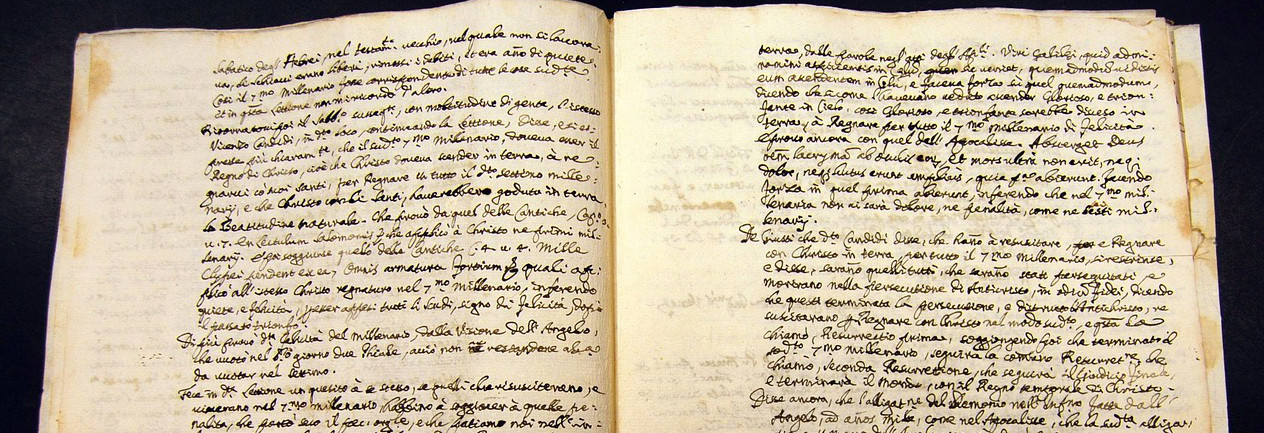 Sabatico degl' Hebrei, nel testamto vecchio, nel quale non si lavora-
va, li schiavi erano liberi, rimossi i debiti, et era año di quiete,
Così il 7mo Millenario fosse di tutte le cose sudte
et in qsta Lettione non mi ricordo d'altro.
Ritornato poi il sabbo, con moltitudine di gente, l'istesso
Vicenzo Candidi, in do loco, continuando la lettione, Disse, et si es-
presse più chiaramte, che il sudo 7mo Millenario, doveva esser il
Regno di Christo, cioè che Christo doveva scender in terra, à re-
gnare co' suoi santi, per Regnare in tutto il do settimo mille-
nario, e che Christo con li santi, haverebbero goduta in terra
la Beatitudine naturale. Che provò da quel delle Cantiche,
u. 7. En lectulum Salomonis che applicò à Christo ne' primi mil-
lenarij. e poi soggiunse quello delle Cantiche C. 4 u. 4. Mille
Clypei pendent ex ea, Omnis armatura fortium quali ap-
plicò all' istesso Christo regnaturo nel 7mo Millenario, inferendo
quiete, e felicità, tutti li scudi, segno di felicità, dopo
il passato trionfo.
Di più provò da felicità del Millenario, dalla Visione dell' Angelo,
che vuotò nel giorno due fiale,
da vuotar nel settimo.
Fece in da Lettione un quesito à se stesso, se quelli che risusciteranno, e
viverano nel 7mo millenario habbino à soggiacer à quelle pe-
nalità, che e che patiamo noi
terra, dalle parole negl' atti degl' Apli. Viri Galilei, quid admi-
ramini aspicientes in Celum, sic veniet, quemadmodum vidistis
eum ascendentem in Celum, e faceva forza su quel quemadmodum,
dicendo che si come l'havevano veduto ascender glorioso, e trion-
fante in Cielo, così Glorioso, e trionfante sarebbe disceso in
terra, à Regnare per tutto il 7mo Millenario di felicità.
e provò ancora con quel dell' Apocalisse. Absterget Deus
omnem lacrymam ab oculis eorum, et mors ultra non erit, neque
dolor, neque luctus erunt amplius, quia pa abierunt. facendo
forza in quel prima abierunt, inferendo che nel 7mo mil-
lenario non vi sarà dolore, ne penalità, come ne sesti mil-
lenarij.
De Giusti che do Candidi disse, che hano à resuscitare, e Regnare
con Christo in terra, per tutto il 7mo Millenario, si restrinse,
e disse, sarano quelli tutti, che sarano stati perseguitati, e
morirano nella persecutione di Antichristo, in odium fidei, dicendo
che questi terminata la persecutione, e distrutto Antichristo, re-
suscitarano à Regnare con Christo nel modo sudo, e qsta la
chiamò, Resurrectio prima, soggiongendo poi che terminato il
sudo 7mo Millenario, seguirà la comune Resurretne che
chiamò, seconda Resurrettione, che seguirà il giudicio finale,
e terminarà il Mondo, con il Regno temporale di Christo.
Disse ancora, che l'alligatne del Demonio nell' Infno fatta dall'
Angelo, ad años Mille, come nell' Apocalisse, che la suda alligat